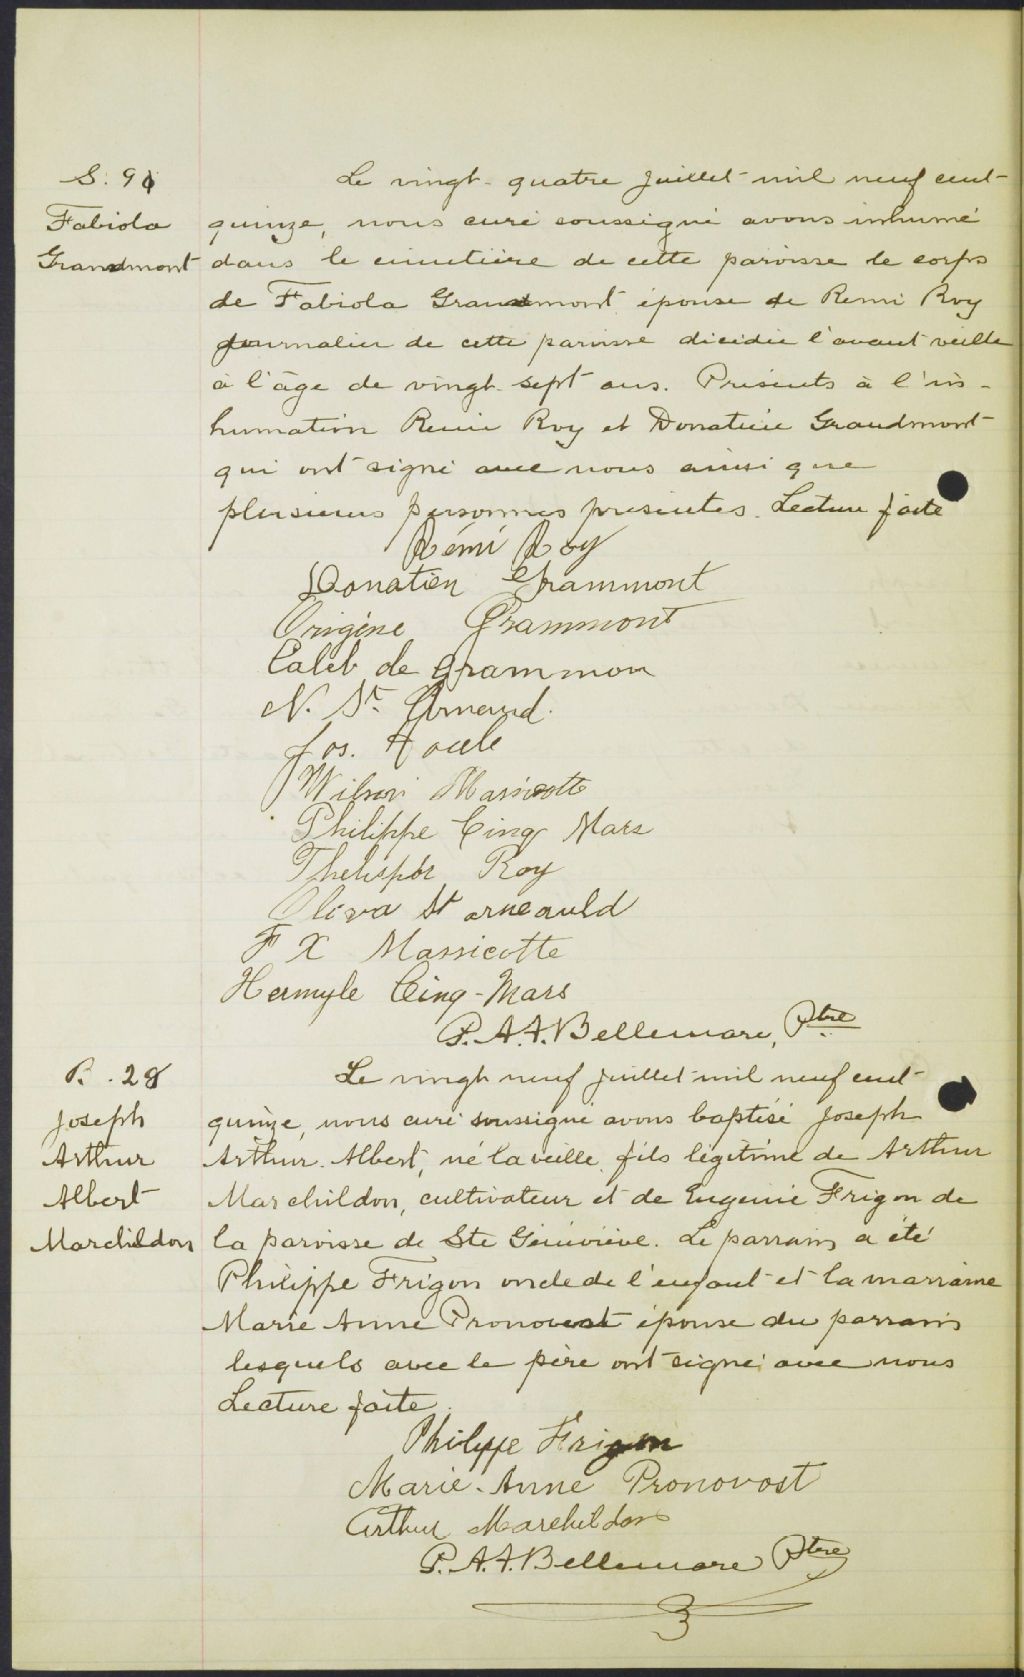 S. 9
Fabiola
Grandmont
Le vingt-quatre juillet mil neuf cent
quinze, nous curé soussigné avons inhumé
dans le cimetière de cette paroisse le corps
de Fabiola Grandmont épouse de Remi Roy
journalier de cette paroisse décédée l'avant veille
à l'âge de vingt-sept ans. Présents à l'in-
humation Remi Roy et Donatien Grandmont
qui ont signé avec nous ainsi que
plusieurs personnes présentes. Lecture faite
Rémi Roy
Donatien Grammont
Origène Grammont
Caleb de grammon
N. St. Arnaud.
Jos. Houle
Wilson Massicotte
Philippe Cinq Mars
Roy
Oliva St arneauld
F X Massicotte
Hermyle Cinq-Mars
P. A. A. Bellemare, Ptre
B. 28
Joseph
Arthur
Albert
Marchildon
Le vingt neuf juillet mil neuf cent
quinze, nous curé soussigné avons baptisé Joseph
Arthur Albert, né la veille, fils légitime de Arthur
Marchildon, cultivateur et de Eugénie Frigon de
la paroisse de Ste Geneviève. Le parrain a été
Philippe Frigon oncle de l'enfant et la marraine
Marie Anne Pronovost épouse du parrain
lesquels avec le père ont signé avec nous
Lecture faite.
Philippe Frigon
Marie-Anne Pronovost
Arthur Marchildon
P. A. A. Bellemare Ptre